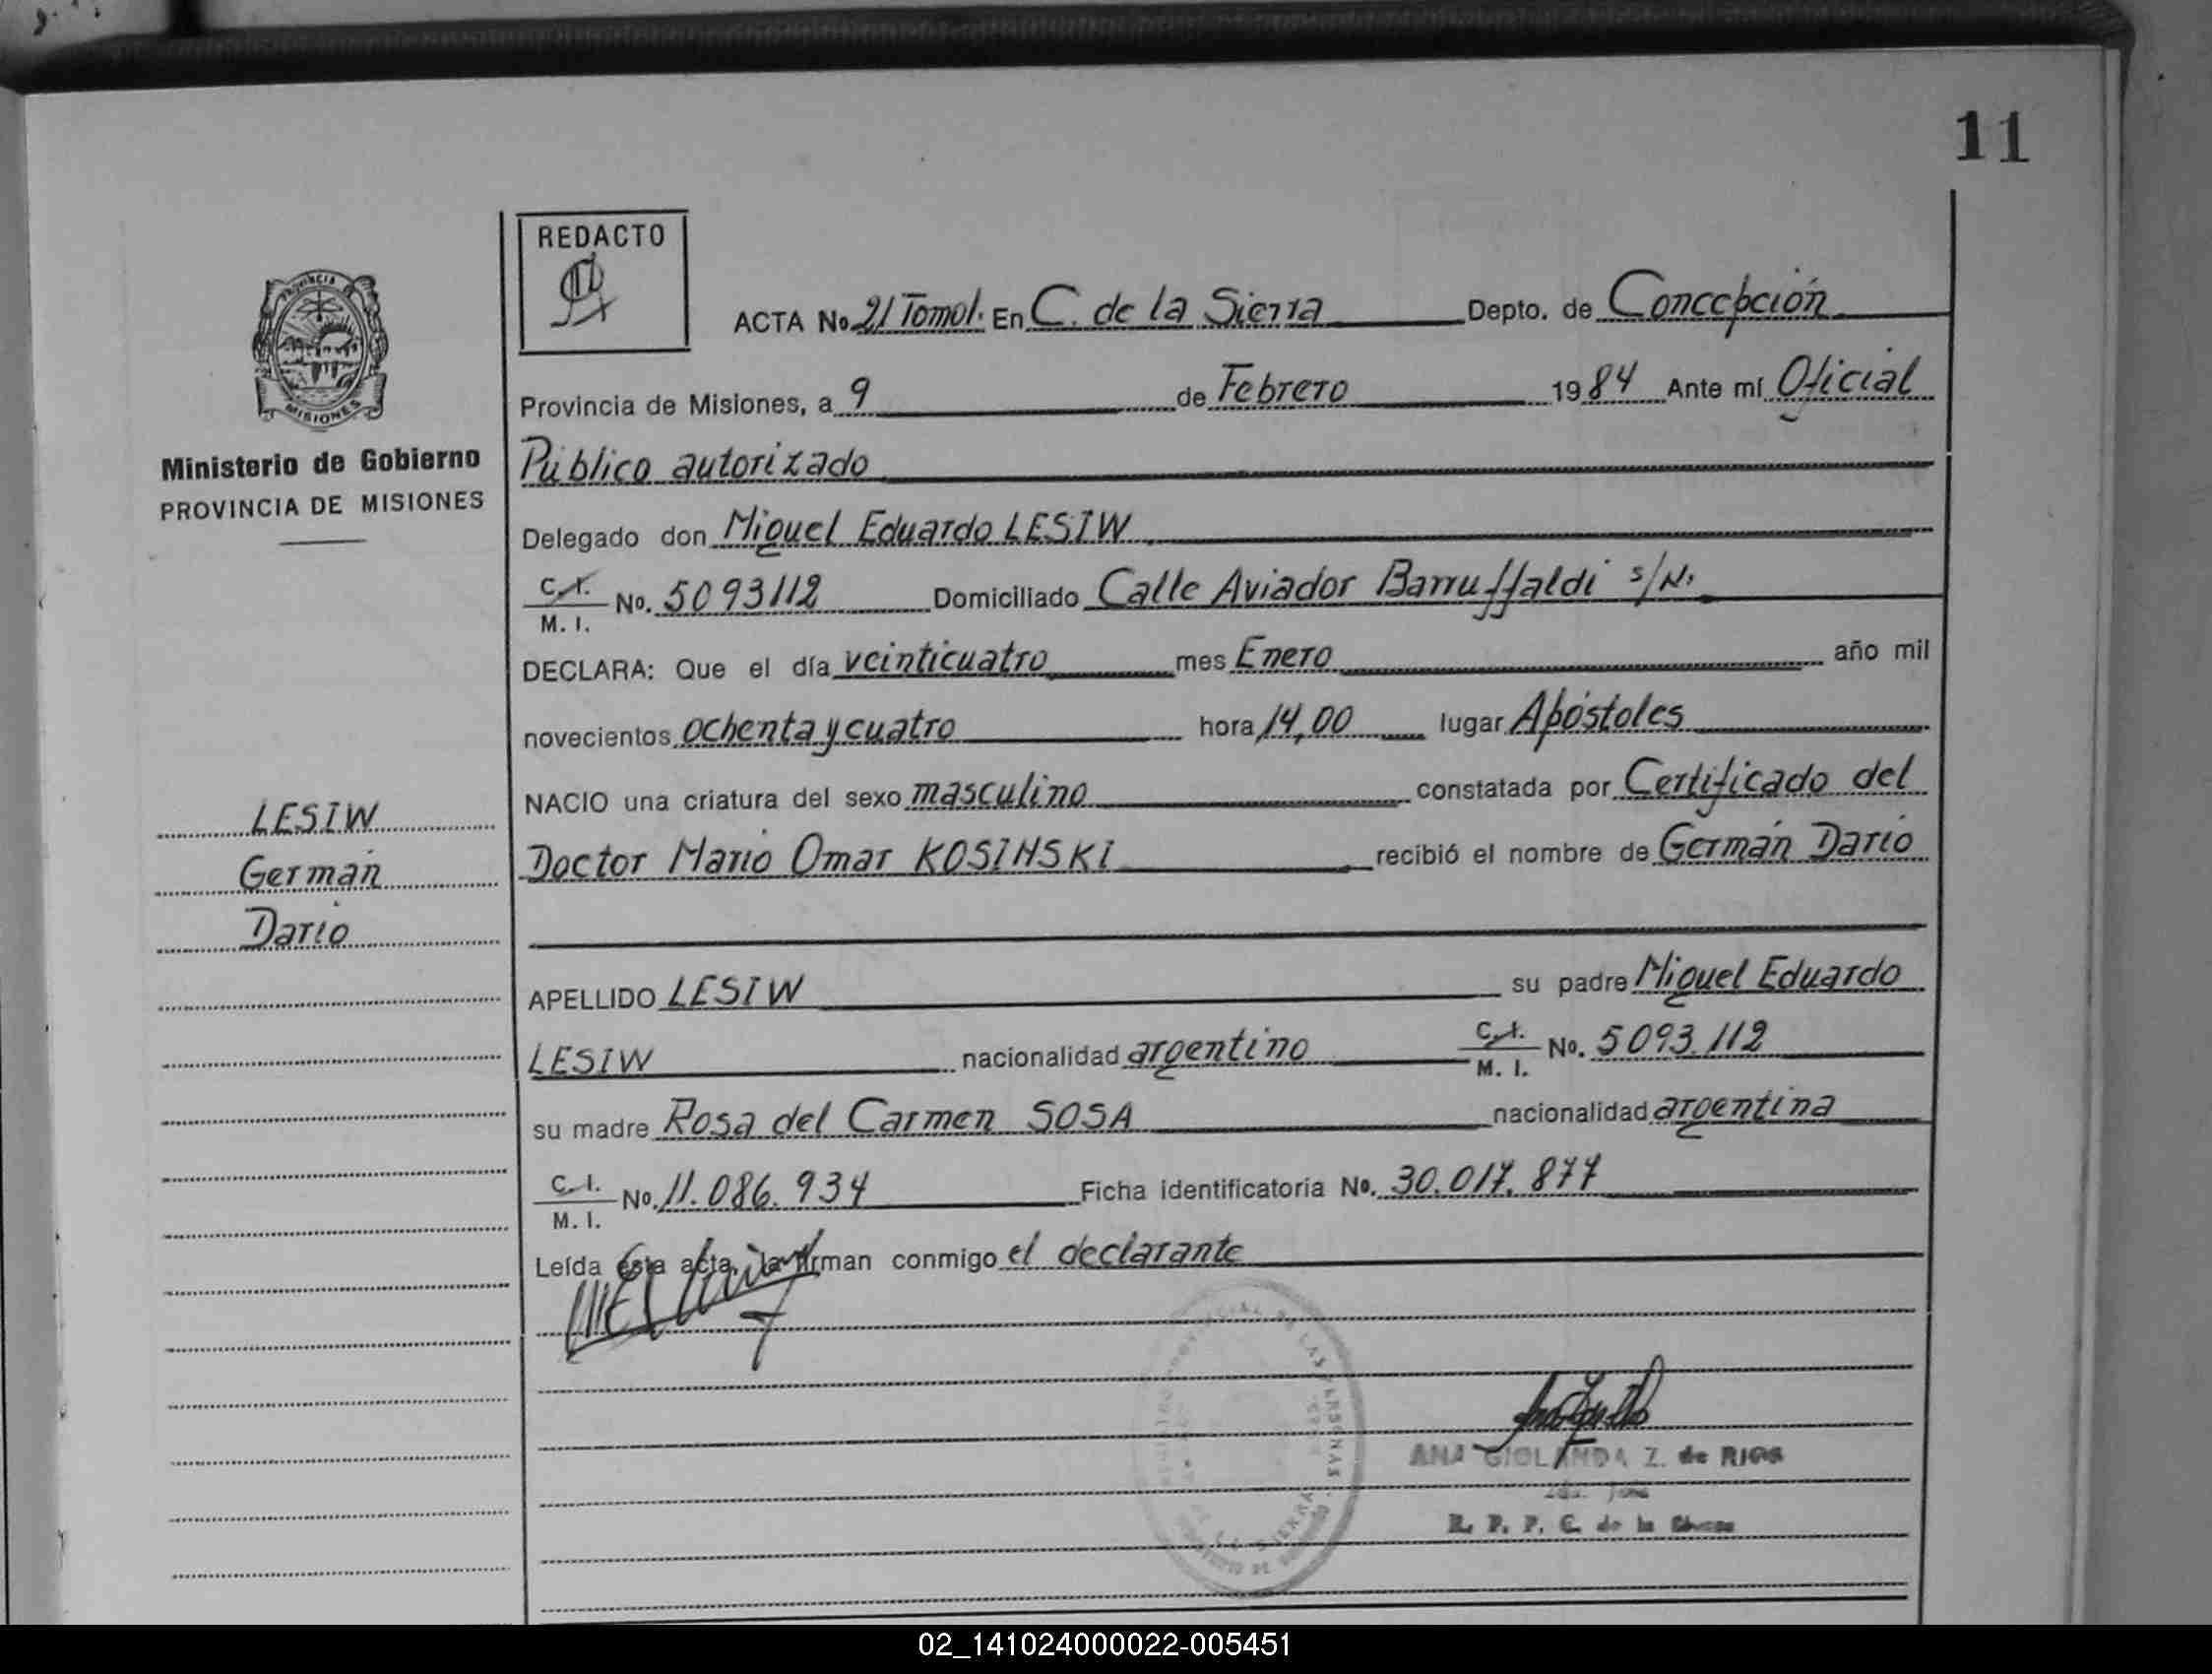 11
REDACTO
ACTA No 21 Tomo I. En C. de la Sierra Depto. de Concepción
Provincia de Misiones, a 9 de Febrero 1984 Ante mí Oficial
Público autorizado
Delegado don Miguel Eduardo LESIW
C.I. M. I. No. 5093112 Domiciliado Calle Aviador Barruffaldi s/N.
DECLARA: Que el día veinticuatro mes Enero año mil
novecientos ochenta y cuatro hora 14,00 lugar Apóstoles
NACIO una criatura del sexo masculino constatada por Certificado del
Doctor Mario Omar KOSINSKI recibió el nombre de Germán Darío
APELLIDO LESIW su padre Miguel Eduardo
LESIW nacionalidad argentino C.I. M. I. No. 5093.112
su madre Rosa del Carmen SOSA nacionalidad argentina
C.I. M. I. No. 11.086.934 Ficha identificatoria No. 30.017.877
Leída esta acta, la firman conmigo el declarante
PROVINCIA
MISIONES
Ministerio de Gobierno
PROVINCIA DE MISIONES
LESIW
Germán
Darío
DE LAS PERSONAS
SIERRA
ANA GIOLANDA Z. de RIOS
R. P. P. C. de la Sierra
02_141024000022-005451